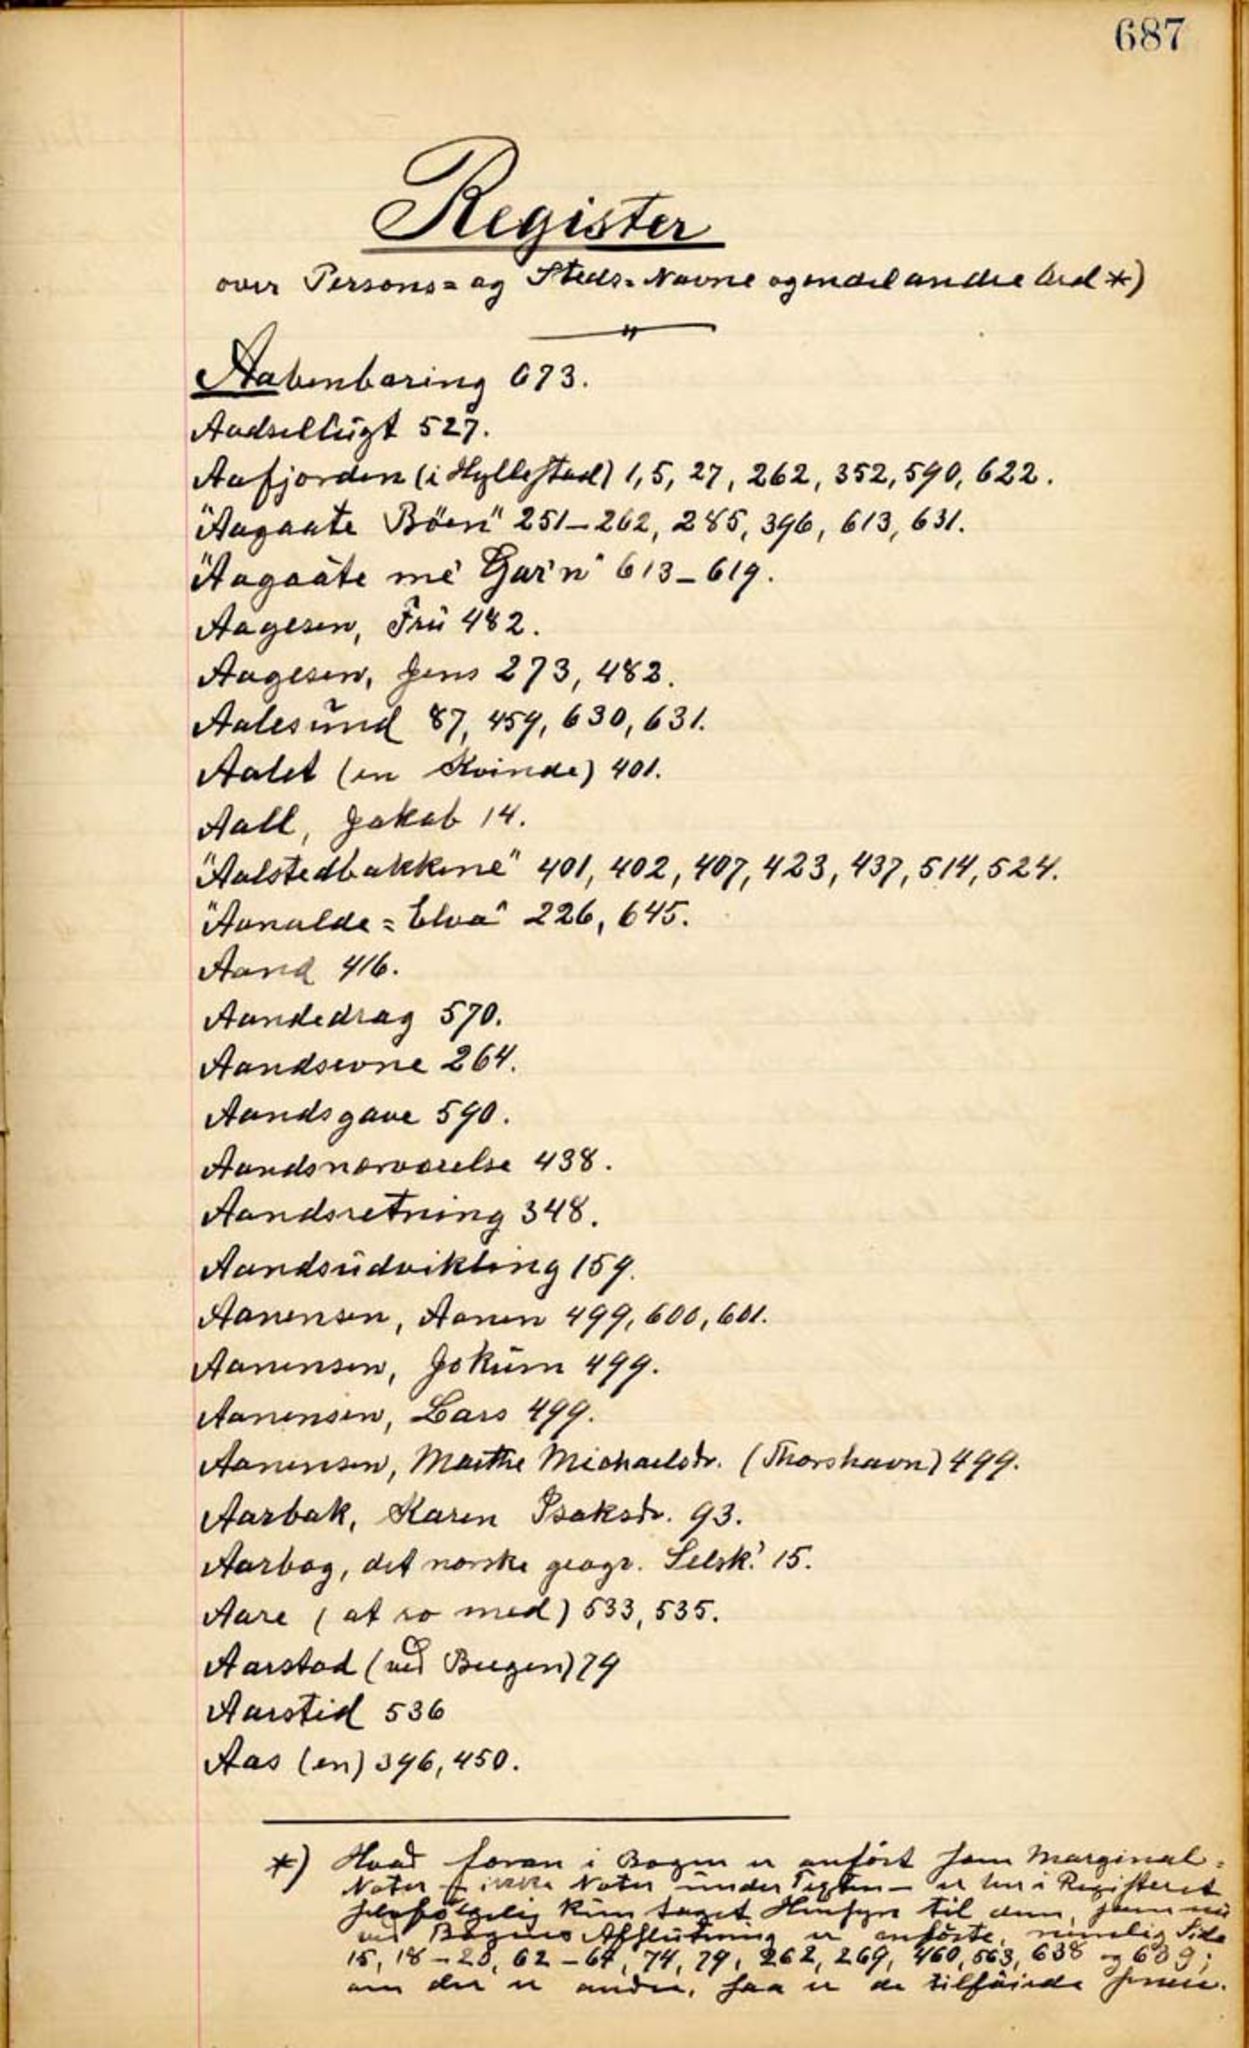 687
Register
over Persons= og Steds=Navne og endel andre Ord *)
Aabenbaring 673.
Aadsellugt 527.
Aafjorden (i Hyllestad) 1, 5, 27, 262, 352, 590, 622.
"Aagaate Böen" 251–262, 285, 396, 613, 631.
"Aagaate me' Gar'n" 613–619.
Aagesen, Fru 482.
Aagesen, Jens 273, 482.
Aalesund 87, 459, 630, 631.
Aalet (en Kvinde) 401.
Aall, Jakob 14.
"Aalstedbakkene" 401, 402, 407, 423, 437, 514, 524.
"Aanalde=Elva" 226, 645.
Aand 416.
Aandedrag 570.
Aandsevne 264.
Aandsgave 590.
Aandsnærværelse 438.
Aandsretning 348.
Aandsudvikling 159.
Aanensen, Aanen 499, 600, 601.
Aanensen, Jokum 499.
Aanensen, Lars 499.
Aanensen, Marthe Michaelsdr. (Thorshavn) 499.
Aarbak, Karen Isaksdr. 93.
Aarbog, det norske geogr. Selsk.' 15.
Aare (at ro med) 533, 535.
Aarstad (ved Bergen) 79
Aarstid 536
Aas (en) 396, 450.
*) Hvad foran i Bogen er anført som Marginal=
Noter – ikke Noter under Texten – er her i Registeret
selvfølgelig kun taget Hensyn til dem, som
ved Bogens Afslutning er anførte, nemlig Side
15, 18–20, 62–64, 74, 79, 262, 269, 460, 563, 638 og 639;
om der er andre, saa er de tilføiede senere.